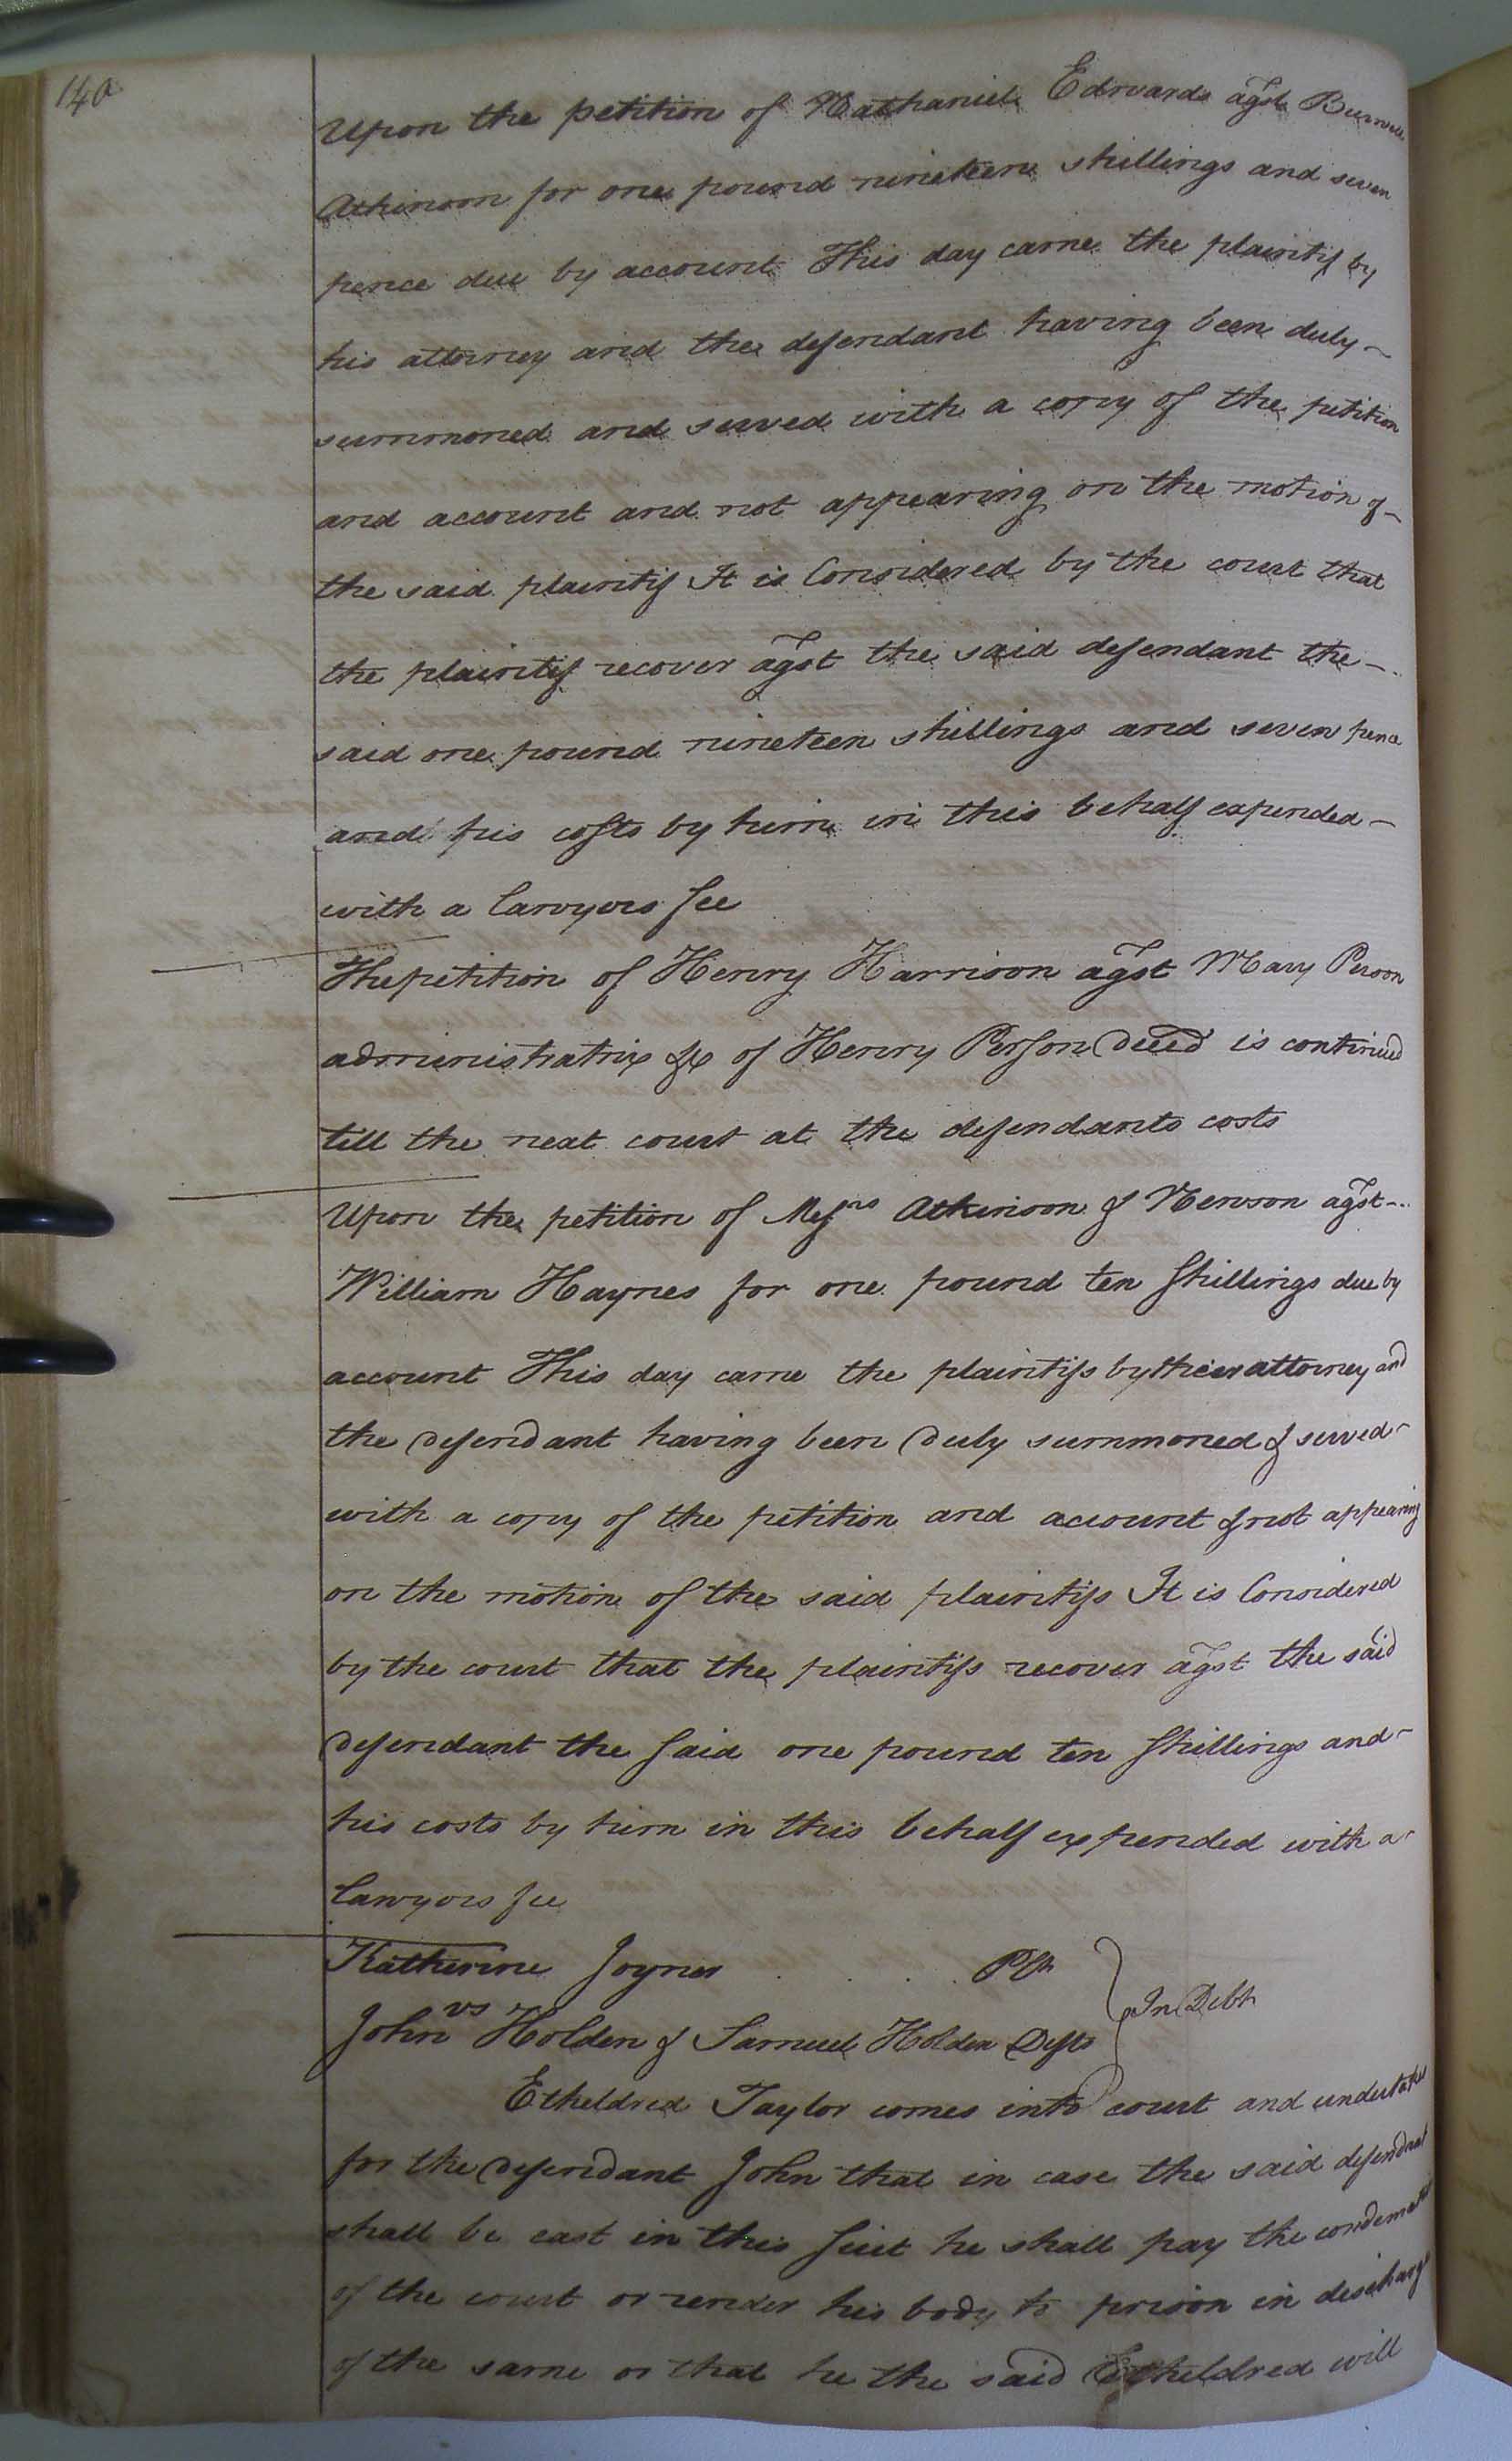 140
Upon the petition of Nathaniel Edwards agst Burwell
Atkinson for one pound nineteen shillings and seven
pence due by account This day came the plaintif by
his attorney and the defendant having been duly
summoned and served with a copy of the petition
and account and not appearing on the motion of
the said plaintif It is Considered by the court that
the plaintif recover agst the said defendant the
said one pound nineteen shillings and seven pence
and his costs by him in this behalf expended
with a Lawyers fee
The petition of Henry Harrison agst Mary Person
administratrix &c of Henry Person Decd is continued
till the next court at the defendants costs
Upon the petition of Messrs Atkinson & Newson agst
William Haynes for one pound ten shillings due by
account This day came the plaintifs by their attorney and
the defendant having been duly summoned & served
with a copy of the petition and account & not appearing
on the motion of the said plaintifs It is Considered
by the court that the plaintifs recover agst the said
defendant the said one pound ten shillings and
his costs by him in this behalf expended with a
Lawyers fee
Katherine Joyner . . . . Plt
vs
In Debt
John Holden & Samuel Holden Defts
Etheldred Taylor comes into court and undertakes
for the defendant John that in case the said defendant
shall be cast in this suit he shall pay the
of the court or render his body to prison in discharge
of the same or that he the said Etheldred will